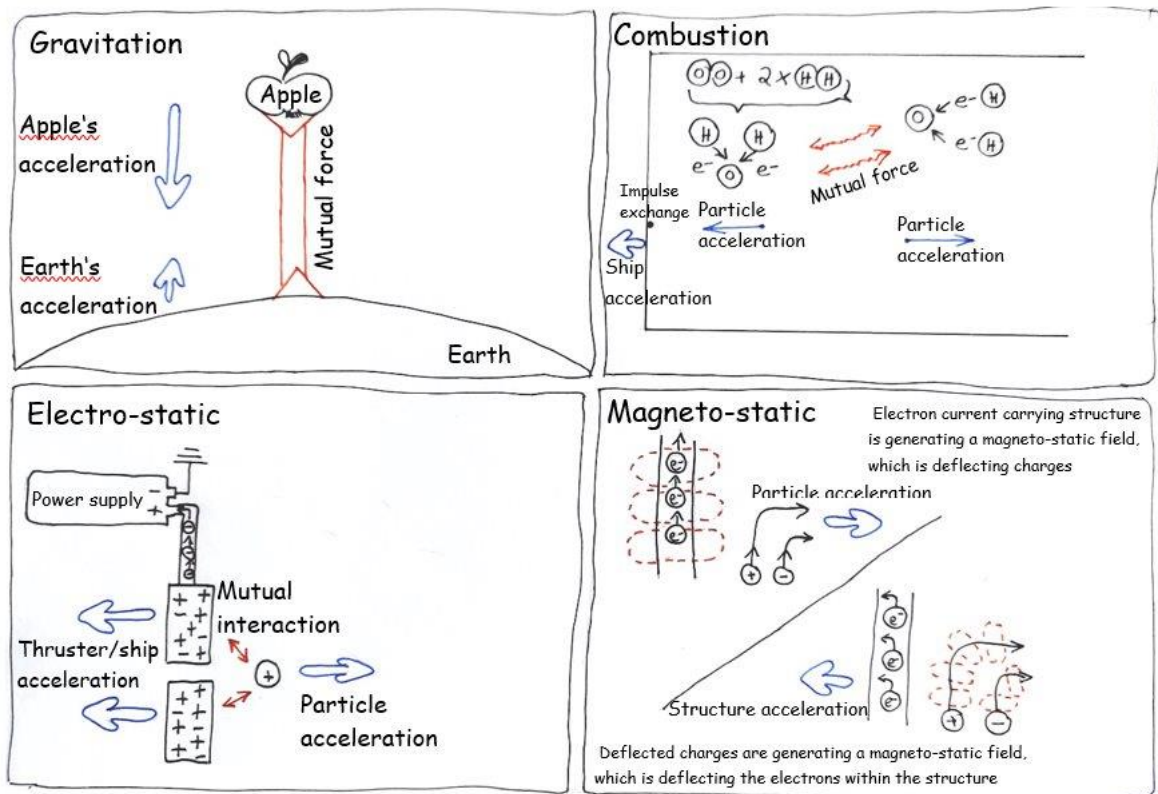 Gravitation
Apple
Apple's
acceleration
Mutual force
Earth's
acceleration
Earth
Combustion
OO + 2 × HH
H H
e- O e-
O e- H
e- H
Mutual force
Impulse
exchange
Particle
acceleration
Particle
acceleration
Ship
acceleration
Electro-static
Power supply
-
+
- - -
+ +
- +
+ -
+ +
Mutual
interaction
+
Thruster/ship
acceleration
+ +
+ -
+ +
- +
Particle
acceleration
Magneto-static
Electron current carrying structure
is generating a magneto-static field,
which is deflecting charges
e-
e-
e-
Particle acceleration
+ -
e-
e-
e-
Structure acceleration
+ -
Deflected charges are generating a magneto-static field,
which is deflecting the electrons within the structure